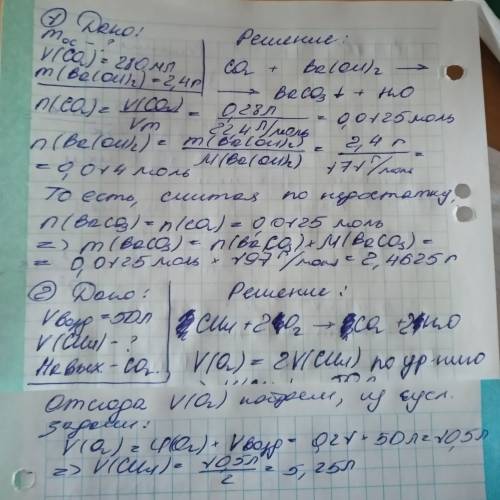 ① Дано:
Решение:
mос - ?
V(CO₂) = 280 мл
m(Ba(OH)₂) = 2,4 г
CO₂ + Ba(OH)₂ →
→ BaCO₃↓ + H₂O
n(CO₂) = V(CO₂)/Vm = 0,28 л/22,4 л/моль = 0,0125 моль
n(Ba(OH)₂) = m(Ba(OH)₂)/M(Ba(OH)₂) = 2,4 г/171 г/моль =
= 0,014 моль
То есть, считая по недостатку,
n(BaCO₃) = n(CO₂) = 0,0125 моль
=> m(BaCO₃) = n(BaCO₃) * M(BaCO₃) =
= 0,0125 моль * 197 г/моль = 2,4625 г
② Дано:
Решение:
Vвозд = 50 л
V(CH₄) - ?
Новых - CO₂.
CH₄ + 2O₂ → CO₂ + 2H₂O
V(O₂) = 2V(CH₄) по ур-нию
Отсюда V(O₂) найдем, из усл.
задачи:
V(O₂) = φ(O₂) * Vвозд = 0,21 * 50 л = 10,5 л
=> V(CH₄) = 10,5 л/2 = 5,25 л